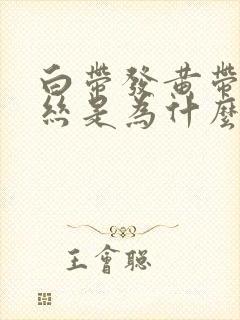 白帶發黃帶
絲是為什麼
王會聰